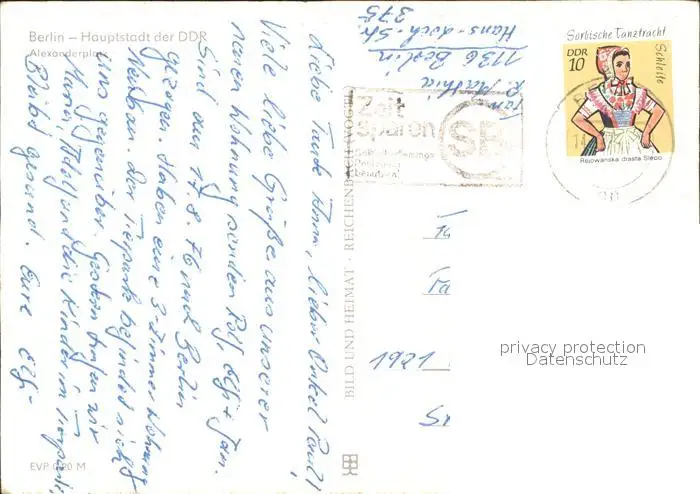 Berlin – Hauptstadt der DDR
Alexanderplatz
Liebe Tante Anni, lieber Onkel Paul!
Viele liebe Grüße aus unserer
neuen Wohnung senden Rolf, Elfi + Jan.
Sind am 17.8.76 nach Berlin
gezogen. Haben eine 3-Zimmer Wohnung
Neubau. Der Tierpark befindet sich
uns gegenüber. Gestern trafen wir
und die Kinder im Tierpark.
Bleibt gesund. Eure Elfi
EVP 0,20 M
Fam.
R.
1136 Berlin
375
BILD UND HEIMAT · REICHENBACH (VOGTL)
Zeit
sparen
SB
Sorbische Tanztracht
Schleife
DDR
10
Rejowanska drasta Slepo
1921
privacy protection
Datenschutz